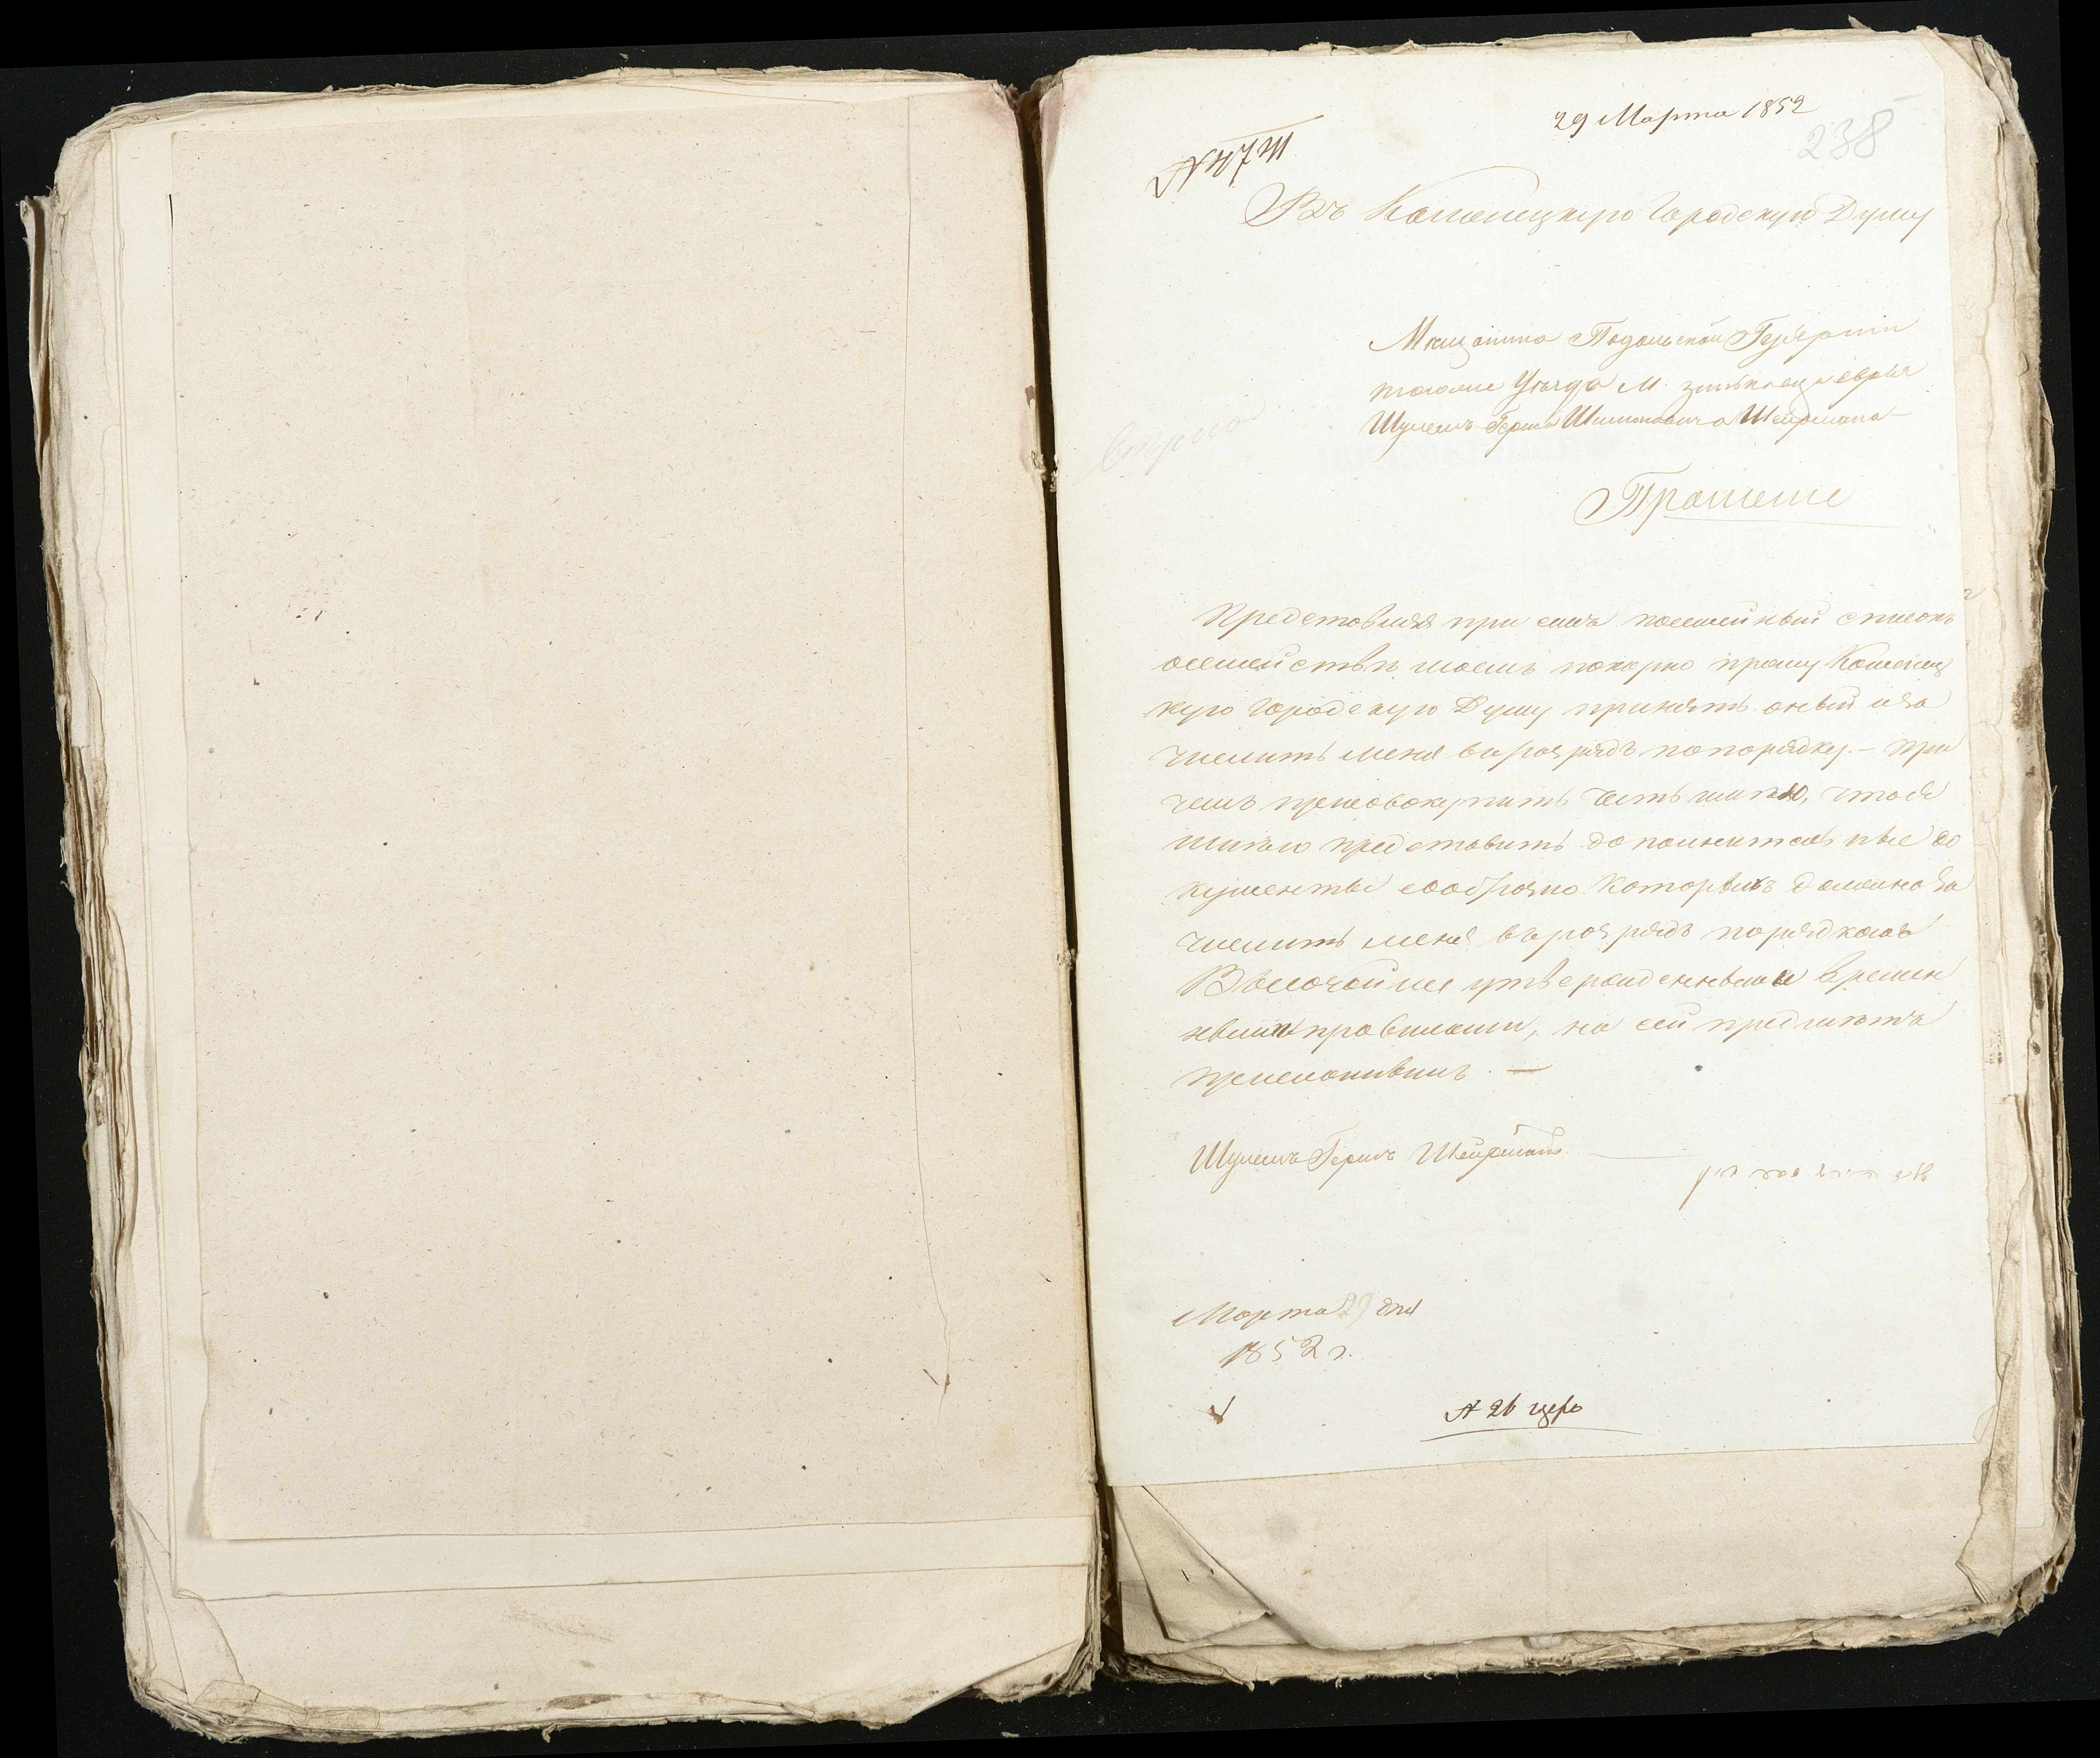 29 Марта 1852
238
Въ Каменецкую Городскую Думу
Мещанина Подольской Губерніи
тогоже Уезда М. Зинькова еврея
Шулемъ Герша Шимоновича Шейфмана
Прошение
Представляя при семъ посемейный списокъ
осемействе моемъ покорно прошу Каменец
кую Городскую Думу принять оный иза
числить меня въразрядъ попорядку. – При
чемъ присовокупить честь имею, чтося
имею представить дополнительные до
кументы сообразно которыхъ должно за
числить меня въразрядъ порядкомъ
Высочайше утвержденными времен
ными правилами, на сей предметъ
Шулемъ Гершъ Шейфманъ
Марта 29 дня
1852 г.